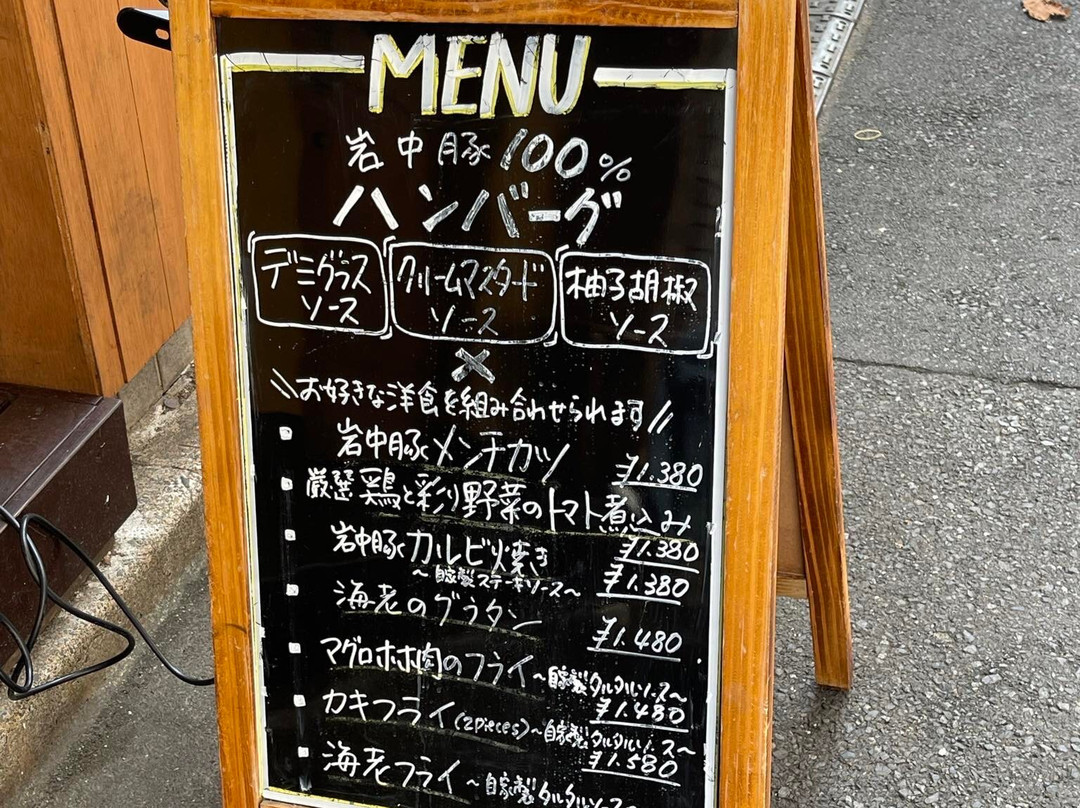 MENU
岩中豚100%
ハンバーグ
デミグラスソース
クリームマスタードソース
柚子胡椒ソース
×
\\お好きな洋食を組み合わせられます//
岩中豚メンチカツ ¥1.380
厳選鶏と彩り野菜のトマト煮込み ¥1.380
岩中豚カルビ焼き ~自家製ステーキソース~ ¥1.380
海老のグラタン ¥1.480
マグロホホ肉のフライ~自家製タルタルソース~ ¥1.480
カキフライ(2pieces)~自家製タルタルソース~ ¥1.580
海老フライ~自家製タルタルソース~